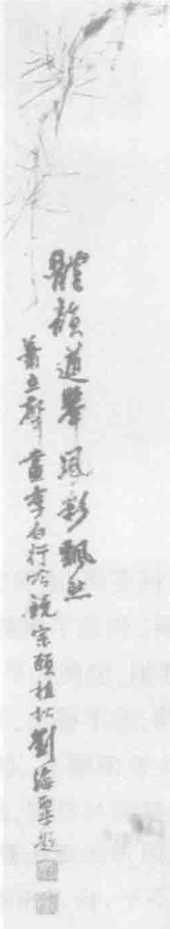 體韻遒舉風彩飄然
蕭立聲畫李白行吟饒宗頤植松劉海粟題